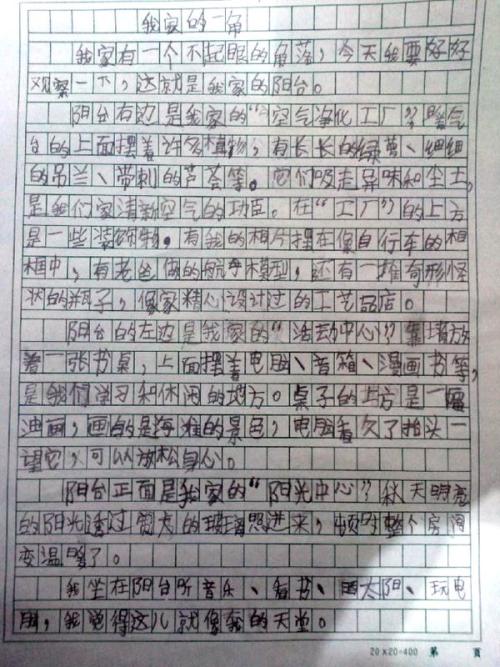 我家的一角
我家有一个不起眼的角落，今天我要好好
观察一下，这就是我家的阳台。
阳台右边是我家的“空气净化工厂”，暖气
台的上面摆着许多植物，有长长的绿萝、细细
的吊兰、带刺的芦荟等。它们吸走异味和尘土，
是我们家清新空气的功臣。在“工厂”的上方
是一些装饰物。有我的相片摆在像自行车的相
框中，有老爸做的航海模型，还有一堆奇形怪
状的瓶子，像家精心设计过的工艺品店。
阳台的左边是我家的“活动中心”，靠墙放
着一张书桌，上面摆着电脑、音箱、漫画书等，
是我们学习和休闲的地方。桌子的上方是一幅
油画，画的是海滩的景色，电脑看久了抬头一
望它，可以放松身心。
阳台正面是我家的“阳光中心”，秋天明亮
的阳光透过宽大的玻璃照进来，顿时整个房间
变温暖了。
我坐在阳台听音乐、看书、晒太阳、玩电
脑，我觉得这儿就像我的天堂。
20×20=400 第 页